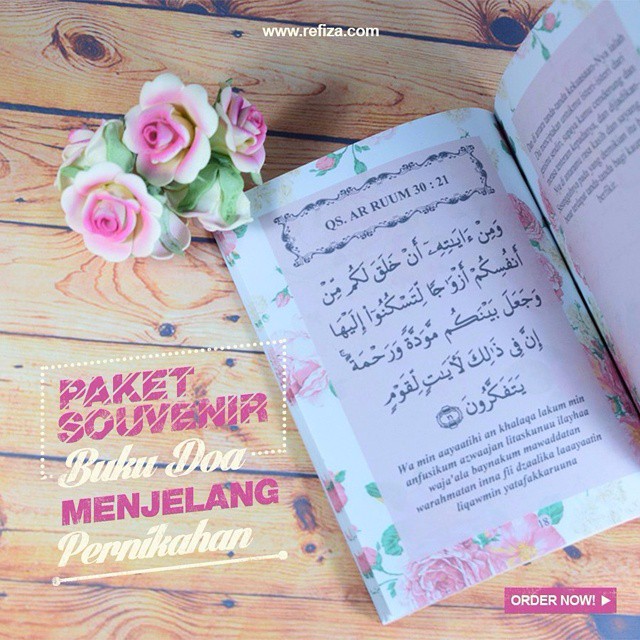 www.refiza.com
QS. AR RUUM 30 : 21
وَمِنْ ءَايَـٰتِهِۦٓ أَنْ خَلَقَ لَكُم مِّنْ
أَنفُسِكُمْ أَزْوَٰجًا لِّتَسْكُنُوٓا۟ إِلَيْهَا
وَجَعَلَ بَيْنَكُم مَّوَدَّةً وَرَحْمَةً
إِنَّ فِى ذَٰلِكَ لَـَٔايَـٰتٍ لِّقَوْمٍ
يَتَفَكَّرُونَ ٢١
Wa min aayaatihi an khalaqa lakum min
anfusikum azwaajan litaskunuu ilayhaa
waja'ala baynakum mawaddatan
warahmatan inna fii dzaalika laaayaatin
liqawmin yatafakkaruuna
18
PAKET
SOUVENIR
Buku Doa
MENJELANG
Pernikahan
ORDER NOW!